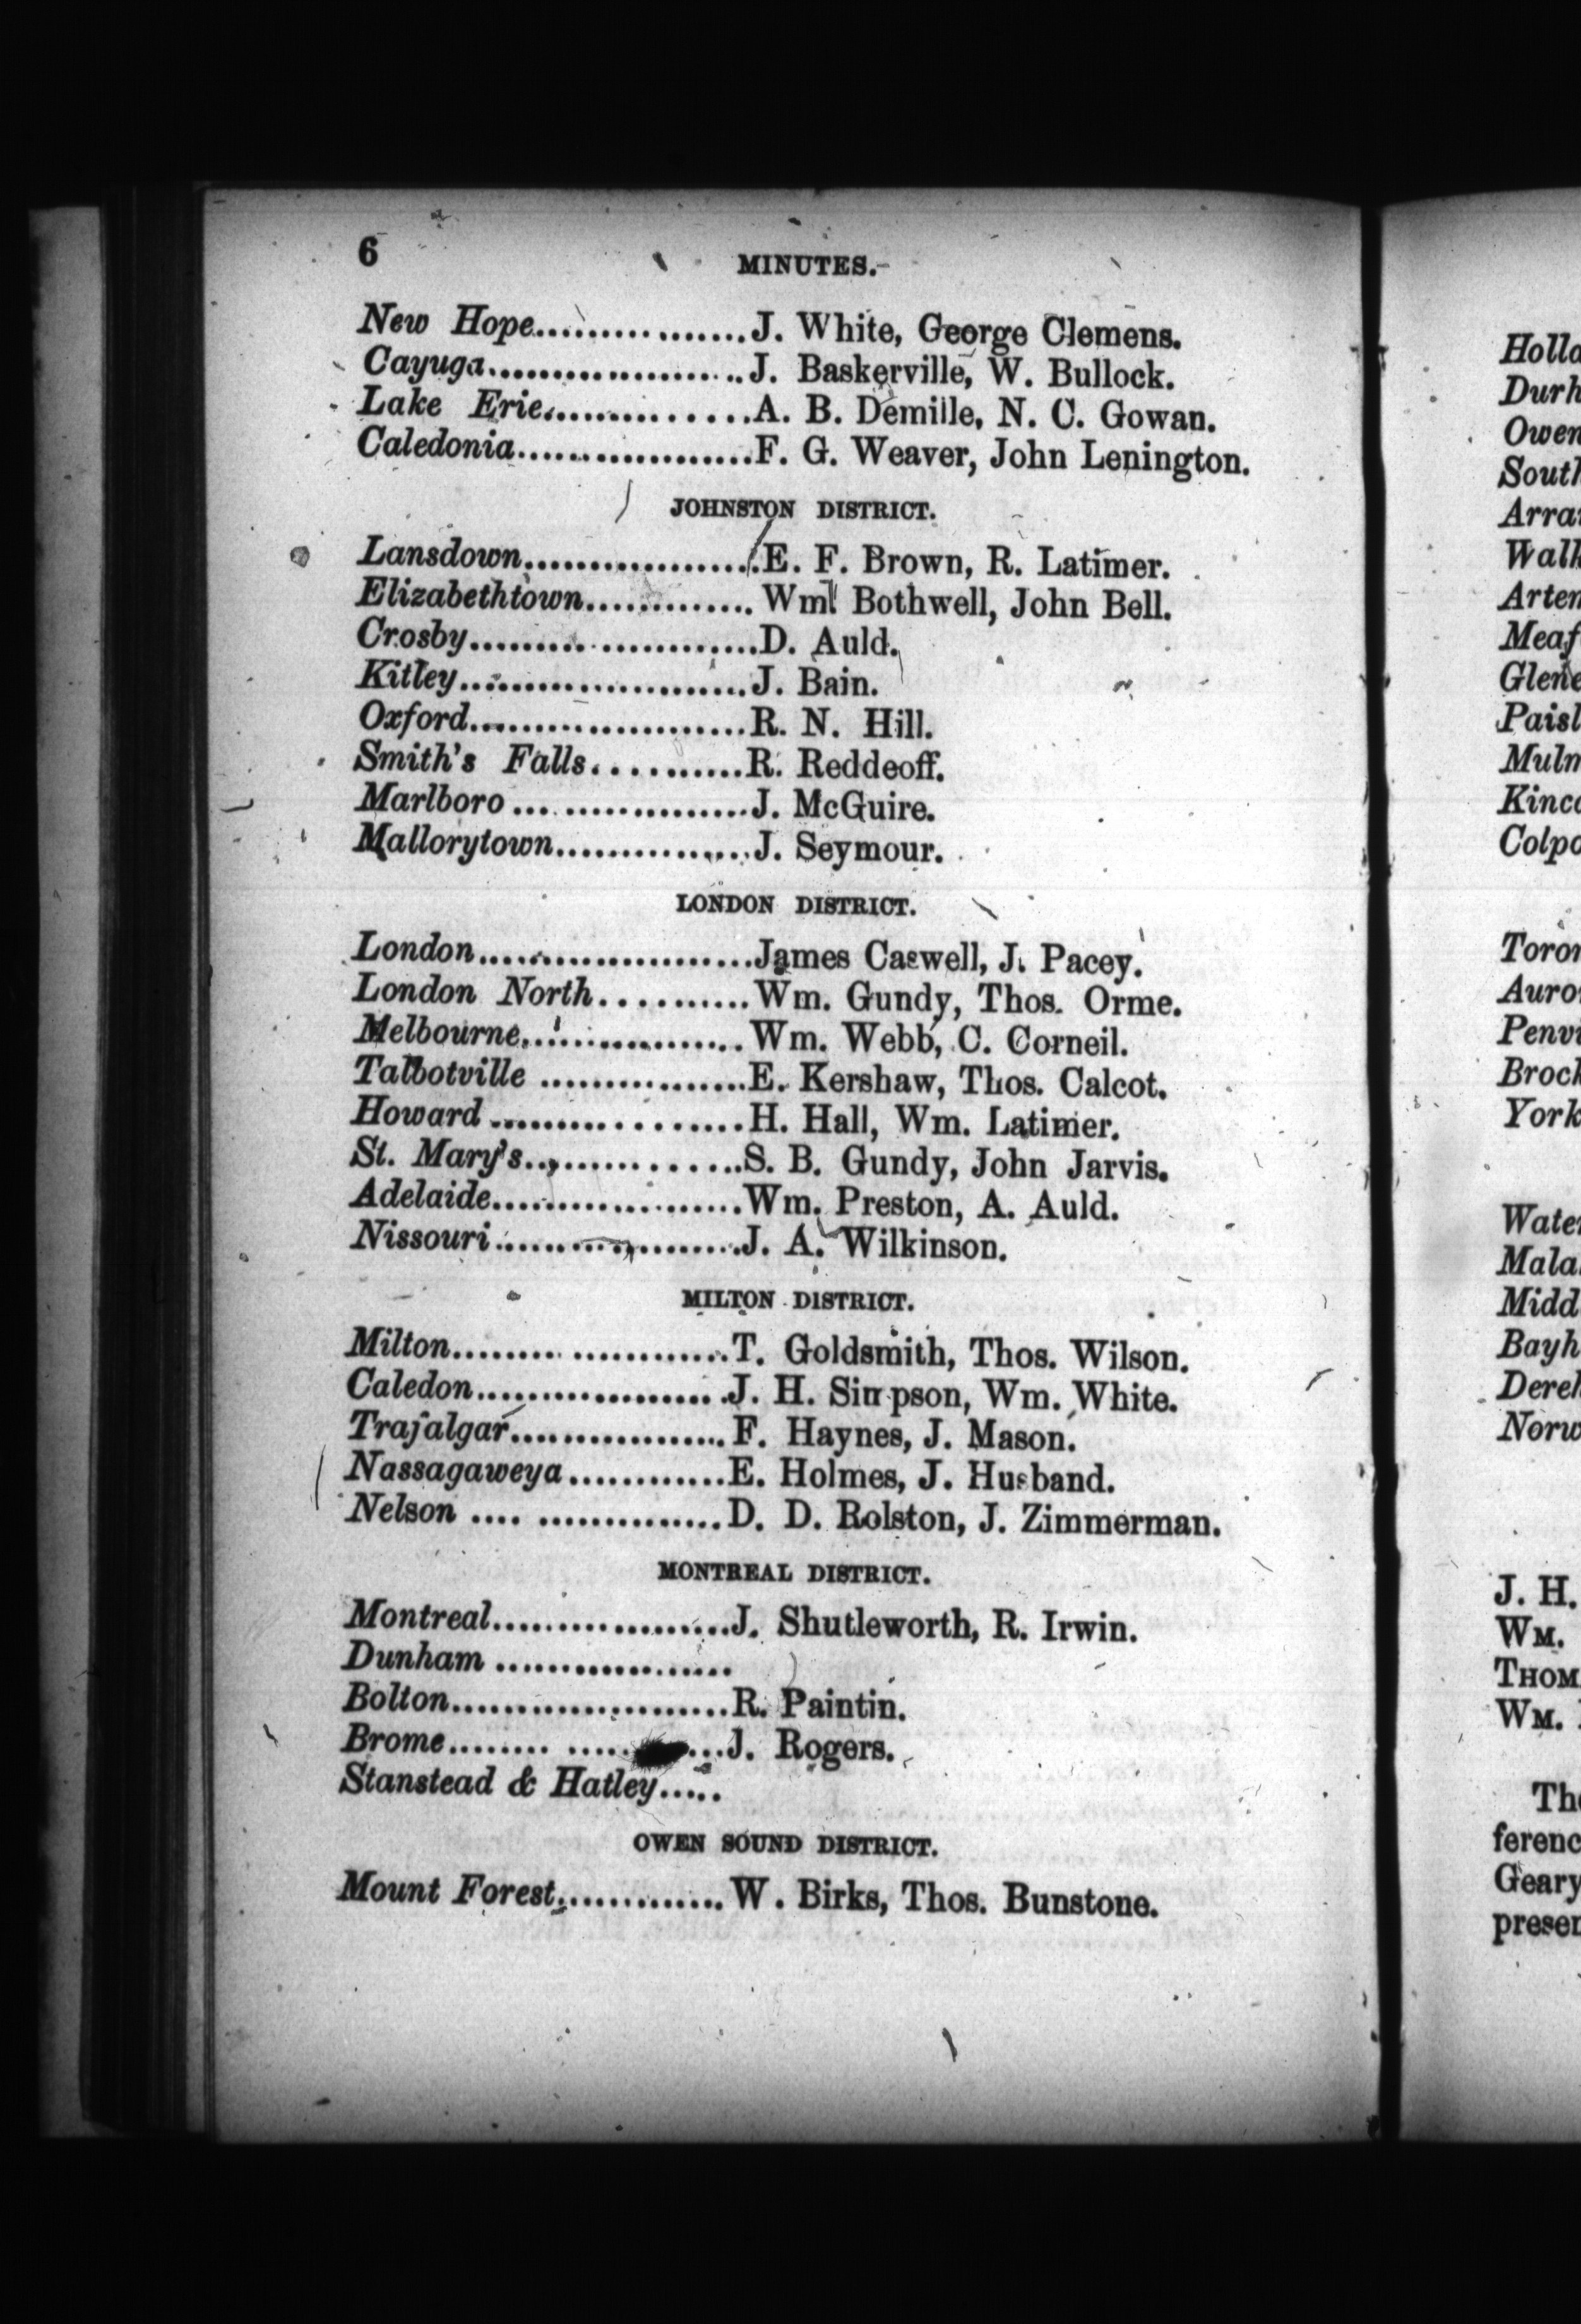 6
MINUTES.
New Hope................J. White, George Clemens.
Cayuga....................J. Baskerville, W. Bullock.
Lake Erie................A. B. Demille, N. C. Gowan.
Caledonia..................F. G. Weaver, John Lenington.
JOHNSTON DISTRICT.
Lansdown..................E. F. Brown, R. Latimer.
Elizabethtown............. Wm. Bothwell, John Bell.
Crosby......................D. Auld.
Kitley......................J. Bain.
Oxford.....................R. N. Hill.
Smith's Falls............R. Reddeoff.
Marlboro ..................J. McGuire.
Mallorytown...............J. Seymour.
LONDON DISTRICT.
London.....................James Caswell, J. Pacey.
London North...........Wm. Gundy, Thos. Orme.
Melbourne................. Wm. Webb, C. Corneil.
Talbotville ................E. Kershaw, Thos. Calcot.
Howard ...................H. Hall, Wm. Latimer.
St. Mary's.................S. B. Gundy, John Jarvis.
Adelaide...................Wm. Preston, A. Auld.
Nissouri...................J. A. Wilkinson.
MILTON DISTRICT.
Milton.....................T. Goldsmith, Thos. Wilson.
Caledon....................J. H. Simpson, Wm. White.
Trafalgar................. F. Haynes, J. Mason.
Nassagaweya............E. Holmes, J. Husband.
Nelson .... ..............D. D. Rolston, J. Zimmerman.
MONTREAL DISTRICT.
Montreal..................J. Shutleworth, R. Irwin.
Dunham ..................
Bolton.....................R. Paintin.
Brome........ ............J. Rogers.
Stanstead & Hatley.....
OWEN SOUND DISTRICT.
Mount Forest............. W. Birks, Thos. Bunstone.
Holla
Durh
Owen
South
Arra
Walk
Artem
Meaf
Glene
Paisl
Mulm
Kinc
Colpo
Toron
Auro
Penvi
Brock
York
Water
Mala
Midd
Bayh
Dereh
Norw
J. H.
WM.
THOM
WM.
The
ferenc
Geary
presen